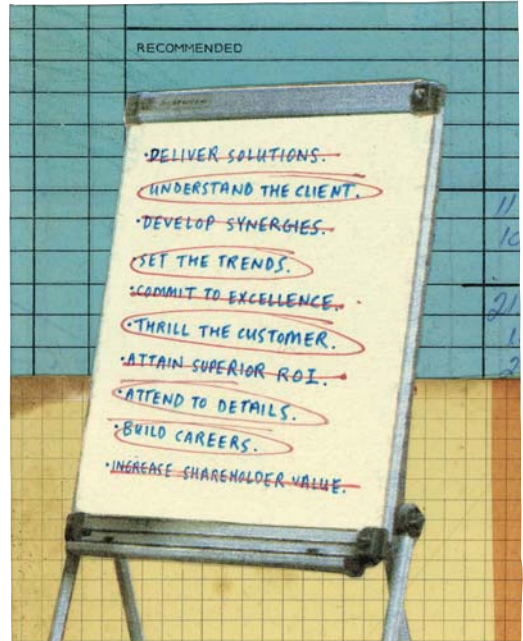 RECOMMENDED
•DELIVER SOLUTIONS.
•UNDERSTAND THE CLIENT.
•DEVELOP SYNERGIES.
•SET THE TRENDS.
•COMMIT TO EXCELLENCE.
•THRILL THE CUSTOMER.
•ATTAIN SUPERIOR ROI.
•ATTEND TO DETAILS.
•BUILD CAREERS.
•INCREASE SHAREHOLDER VALUE.
11
10
21